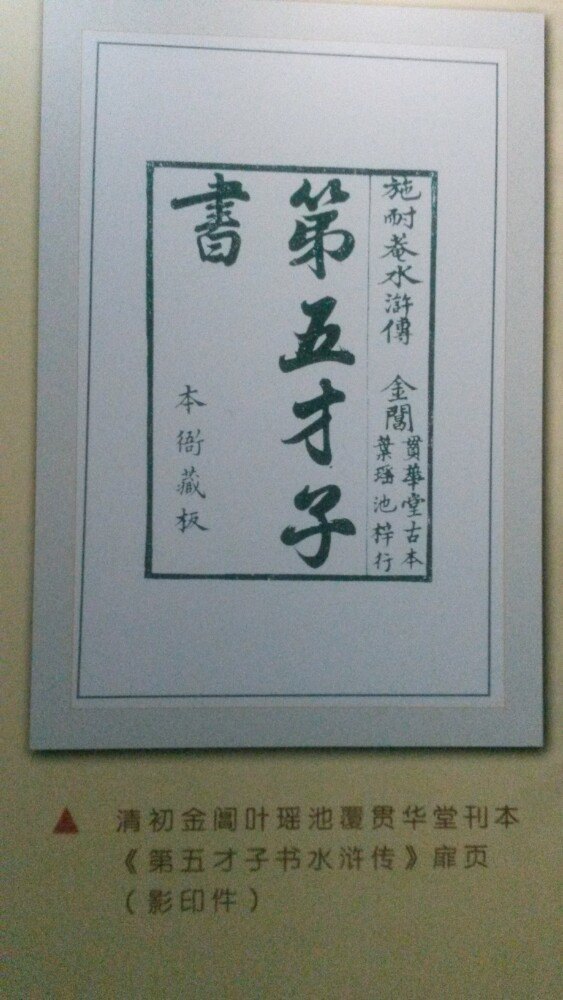 施耐菴水滸傳 金閶
貫華堂古本
葉瑶池梓行
第五才子
書
本衙藏板
▲ 清初金阊叶瑶池覆贯华堂刊本
《第五才子书水浒传》扉页
（影印件）